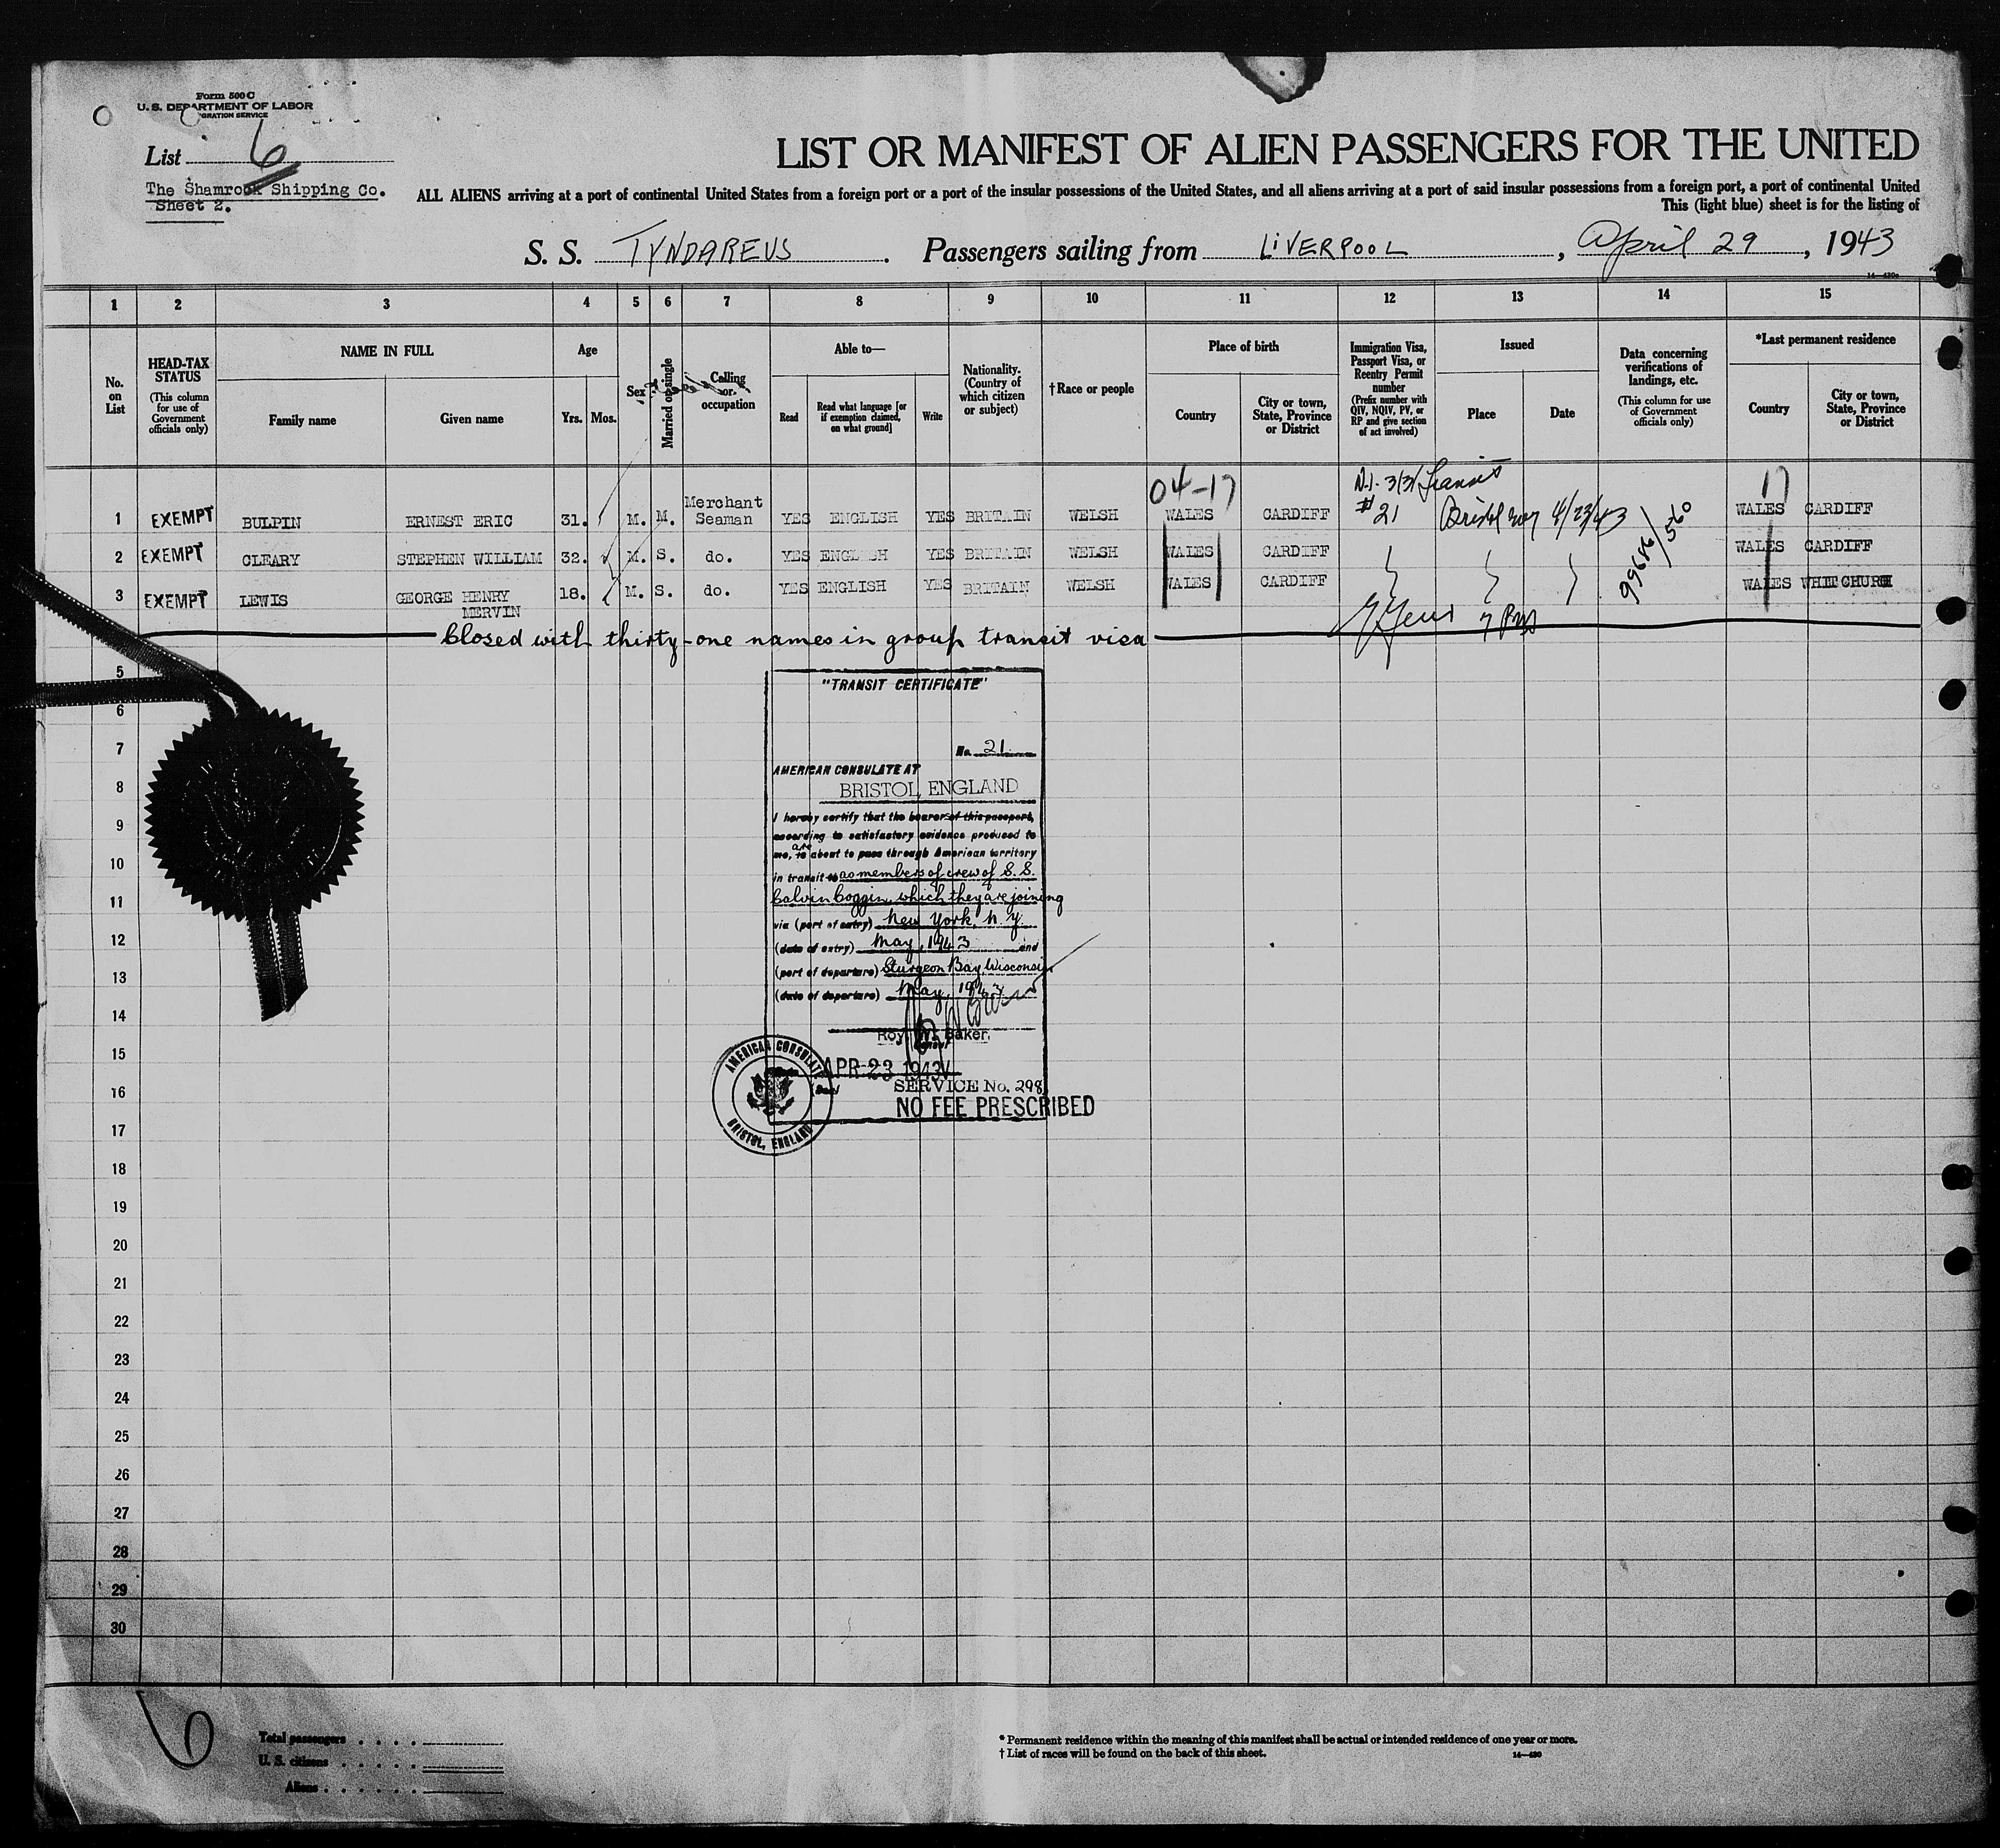 Form 500 C
U. S. DEPARTMENT OF LABOR
IGRATION SERVICE
List 6
The Shamrock Shipping Co.
Sheet 2.
LIST OR MANIFEST OF ALIEN PASSENGERS FOR THE UNITED
ALL ALIENS arriving at a port of continental United States from a foreign port or a port of the insular possessions of the United States, and all aliens arriving at a port of said insular possessions from a foreign port, a port of continental United
This (light blue) sheet is for the listing of
S. S. TYNDAREUS. Passengers sailing from LIVERPOOL, April 29, 1943
1 2 3 4 5 6 7 8 9 10 11 12 13 14 15
No. on List
HEAD-TAX STATUS (This column for use of Government officials only)
NAME IN FULL
Family name Given name
Age
Yrs. Mos.
Sex
Married or single
Calling or occupation
Able to—
Read Read what language [or if exemption claimed, on what ground] Write
Nationality. (Country of which citizen or subject)
†Race or people
Place of birth
Country City or town, State, Province or District
Immigration Visa, Passport Visa, or Reentry Permit number (Prefix number with QIV, NQIV, PV, or RP and give section of act involved)
Issued
Place Date
Data concerning verifications of landings, etc. (This column for use of Government officials only)
*Last permanent residence
Country City or town, State, Province or District
04-17 Transit 17
1 EXEMPT BULPIN ERNEST ERIC 31. M. M. Merchant Seaman YES ENGLISH YES BRITAIN WELSH WALES CARDIFF #21 Bristol 4/23/43 99686/560 WALES CARDIFF
2 EXEMPT CLEARY STEPHEN WILLIAM 32. M. S. do. YES ENGLISH YES BRITAIN WELSH WALES CARDIFF WALES CARDIFF
3 EXEMPT LEWIS GEORGE HENRY MERVIN 18. M. S. do. YES ENGLISH YES BRITAIN WELSH WALES CARDIFF WALES WHITCHURCH
Closed with thirty-one names in group transit visa
5
6
7
8
9
10
11
12
13
14
15
16
17
18
19
20
21
22
23
24
25
26
27
28
29
30
"TRANSIT CERTIFICATE"
No. 21
AMERICAN CONSULATE AT
BRISTOL, ENGLAND
I hereby certify that the bearer of this passport,
according to satisfactory evidence produced to
me, is are about to pass through American territory
in transit to as members of crew of S. S.
Calvin Coggin, which they are joining
via (port of entry) New York, N. Y.
(date of entry) May, 1943 and
(port of departure) Sturgeon Bay, Wisconsin
(date of departure) May, 1943
Roy W. Baker
APR 23 1943
(Seal)
SERVICE No. 298
NO FEE PRESCRIBED
AMERICAN CONSULATE
BRISTOL, ENGLAND
6
Total passengers
U. S. citizens
Aliens
* Permanent residence within the meaning of this manifest shall be actual or intended residence of one year or more.
† List of races will be found on the back of this sheet.
14—430